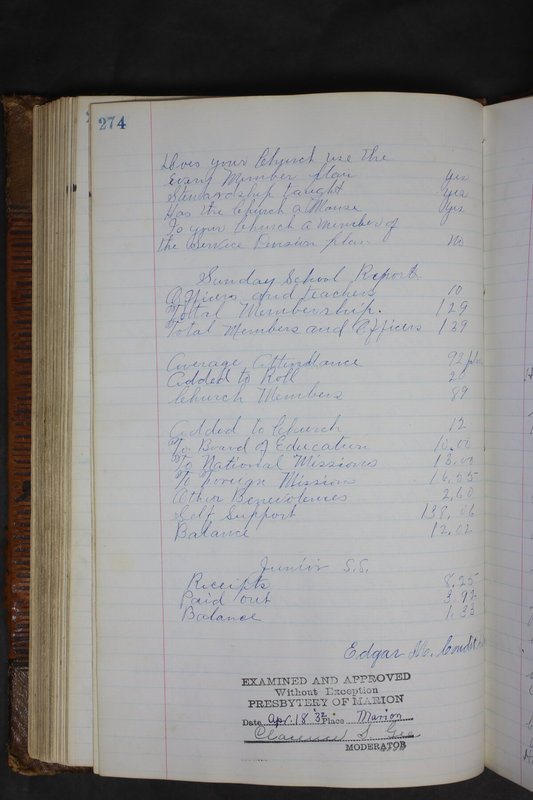 274
Does your Church use the
Every Member plan yes
Stewardship taught yes
Has the Church a Manse yes
Is your Church a member of
the Service Pension plan no
Sunday School Report
Officers and teachers 10
Total Membership. 129
Total Members and Officers 139
Average Attendance 92
Added to Roll
Church Members 89
Added to Church 12
To Board of Education 10.00
To National Missions 18.00
To Foreign Mission 16.55
Other Benevolences 2.60
Self Support 138.06
Balance 12.02
Junior S.S.
Receipts 8.25
Paid out 3.92
Balance 1.33
Edgar M.
EXAMINED AND APPROVED
Without Exception
PRESBYTERY OF MARION
Date Apr. 18 '32 Place Marion
Clarence S. Gee
MODERATOR